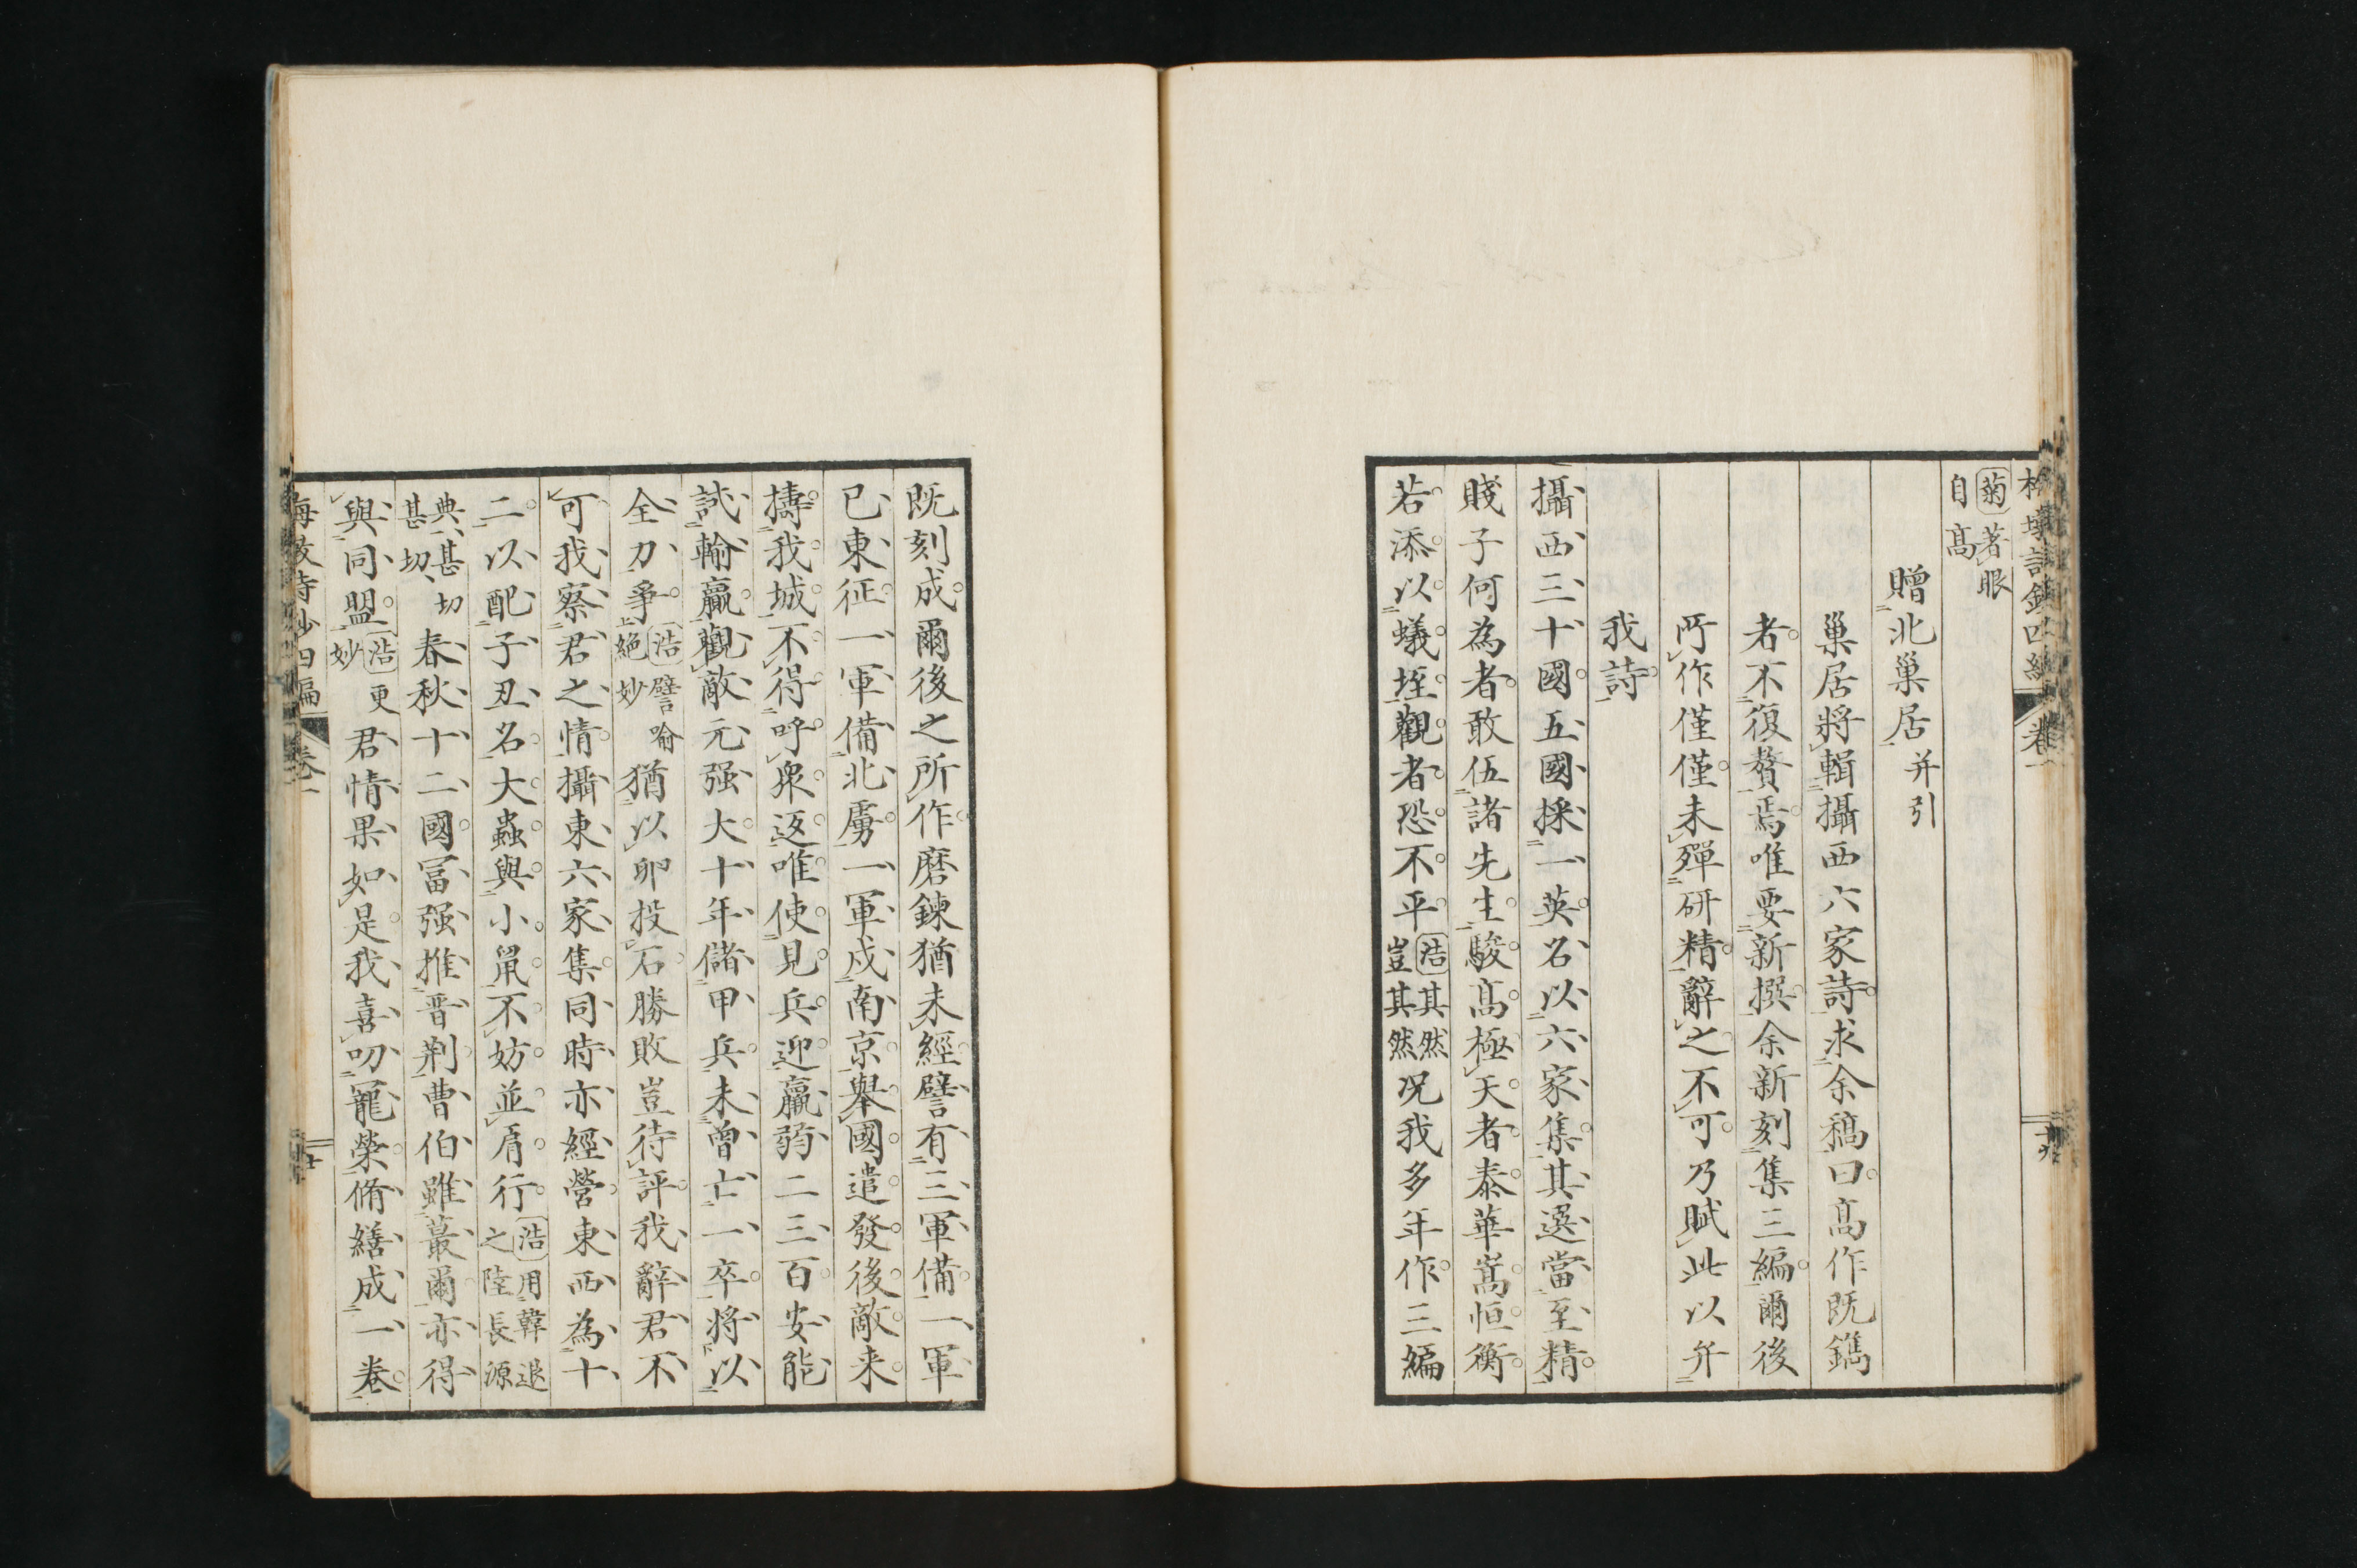 菊著眼
自高
贈北巢居并引
巢居將輯攝西六家詩求余稿曰高作既鐫
者不復贅焉唯要新撰余新刻集三編爾後
所作僅僅未殫研精辭之不可乃賦此以弁
我詩
攝西三十國五國採一英名以六家集其選當至精
賤子何為者敢伍諸先生駿高極天者泰華嵩恒衡
若添以蟻垤觀者恐不平浩其然豈其然況我多年作三編
既刻成爾後之所作磨鍊猶未經譬有三軍備一軍
已東征一軍備北虜一軍戍南京舉國遣發後敵來
擣我城不得呼衆返唯使見兵迎羸弱二三百安能
試輸贏觀敵元强大十年儲甲兵未曾亡一卒將以
全力爭浩譬喻絕妙猶以卵投石勝敗豈待評我辭君不
可我察君之情攝東六家集同時亦經營東西為十
二以配子丑名大蟲與小鼠不妨並肩行浩用韓退之陸長源
典甚切甚切春秋十二國冨强推晋荆曹伯雖蕞爾亦得
與同盟浩更妙君情果如是我喜叨寵榮脩繕成一卷
詩鈔四編 卷一